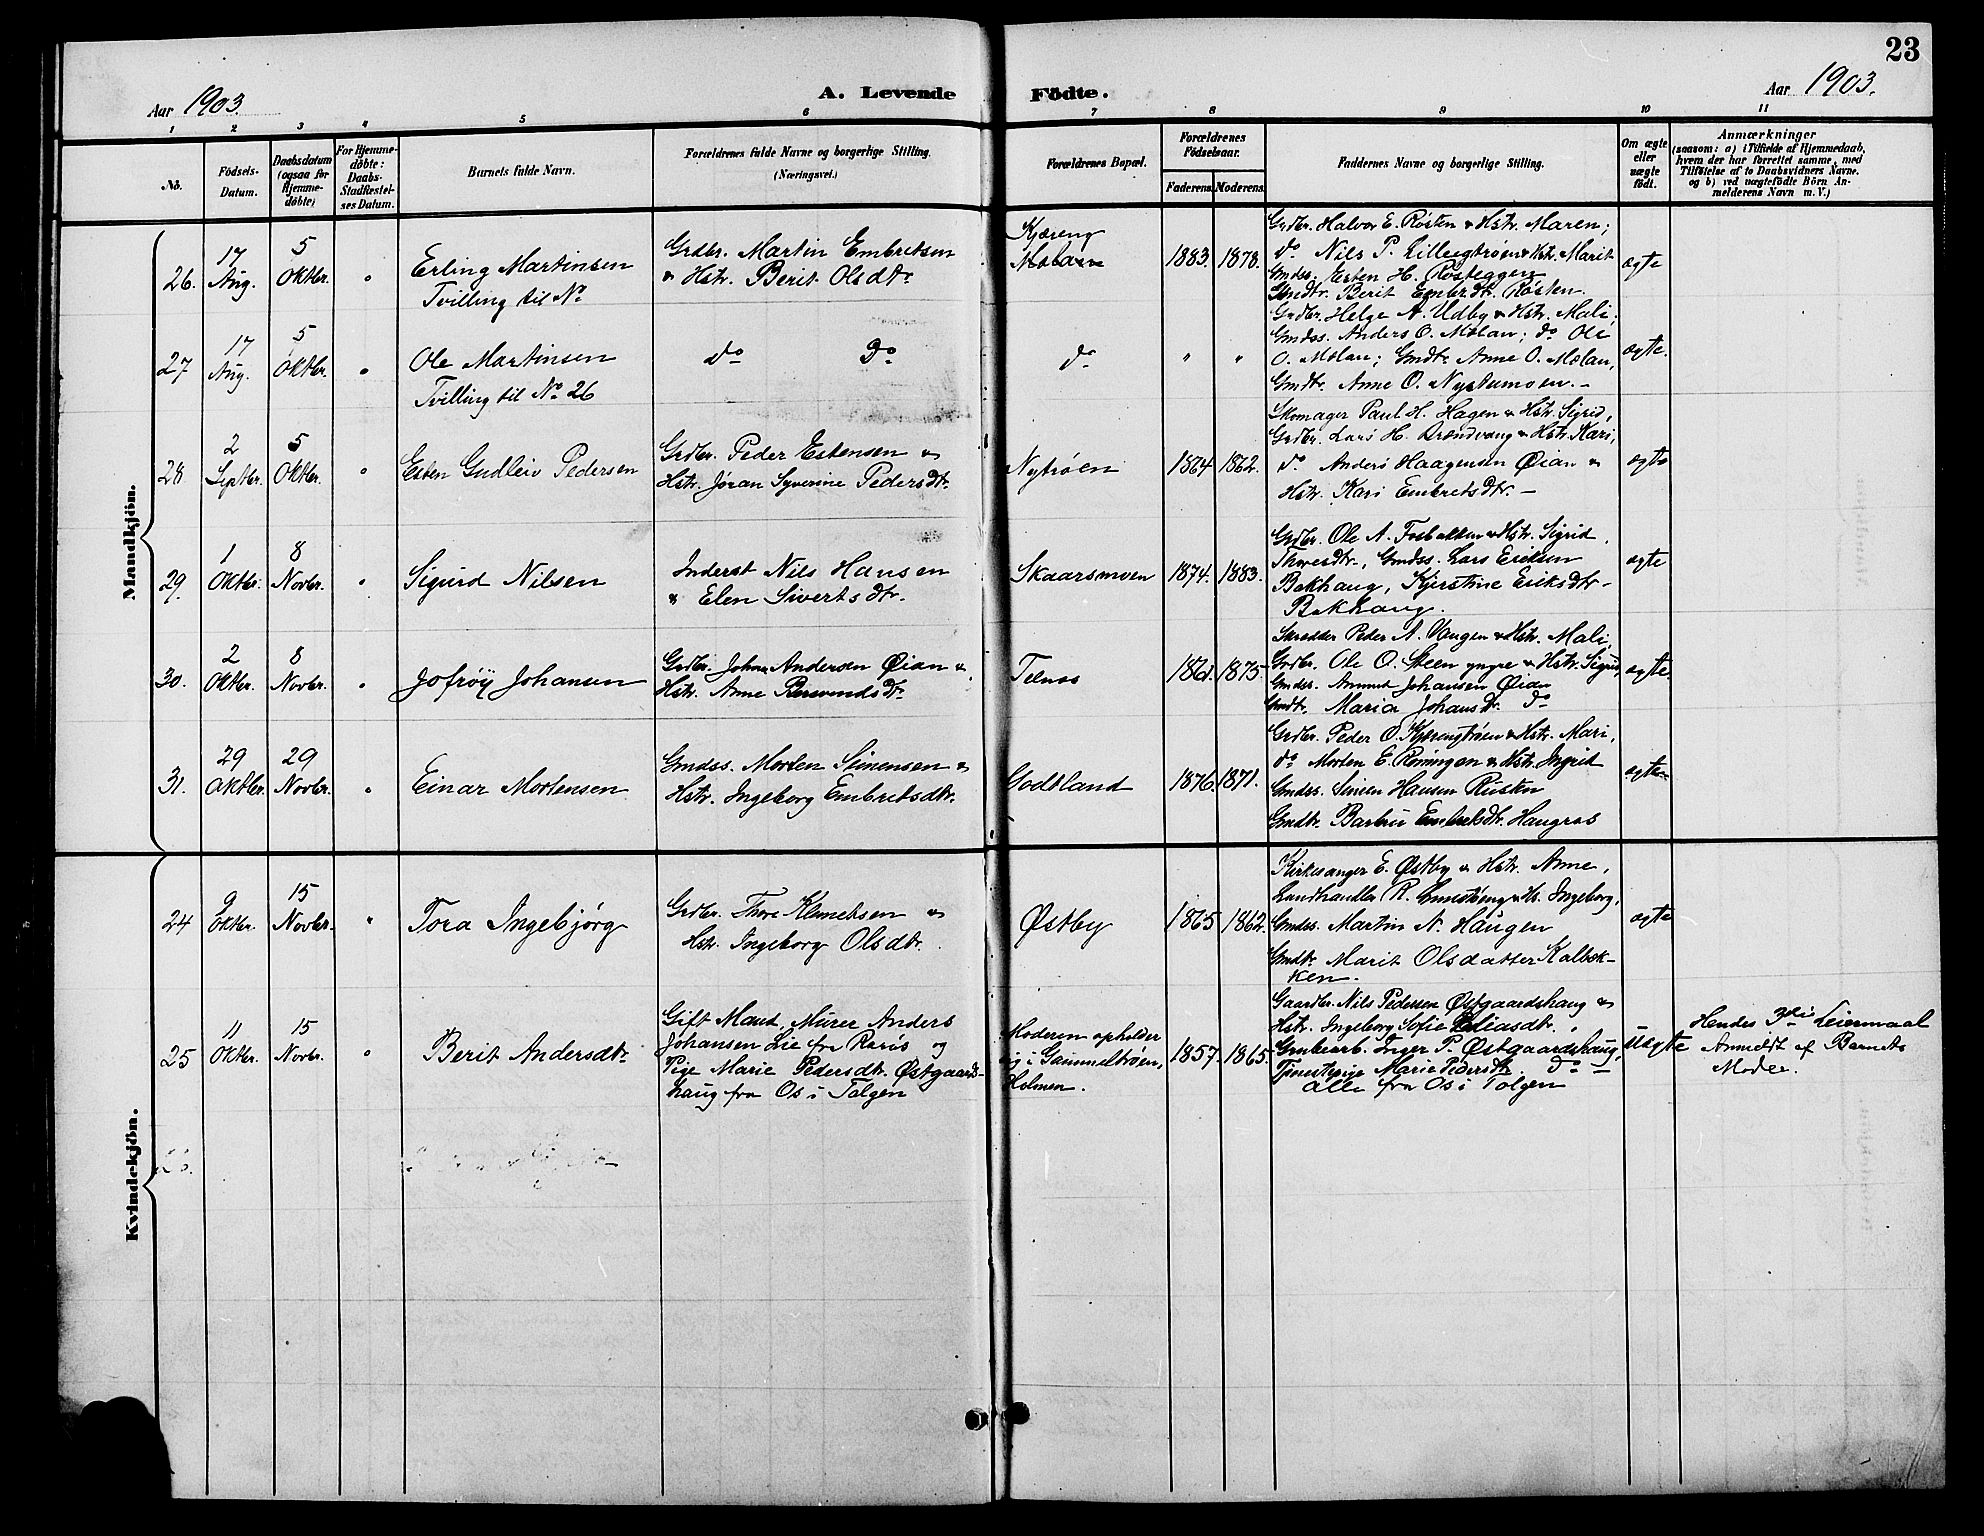 23
Aar 1903.
A. Levende Födte.
Aar 1903.
1 2 3 4 5 6 7 8 9 10 11
No.
Födsels-
Datum.
Daabsdatum
(ogsaa for
Hjemme-
döbte)
For Hjemme-
döbte:
Daabs-
Stadfæstel-
ses Datum.
Barnets fulde Navn.
Forældrenes fulde Navne og borgerlige Stilling.
(Næringsvei.)
Forældrenes Bopæl.
Forældrenes
Födselsaar.
Faderens. Moderens.
Faddernes Navne og borgerlige Stilling.
Om ægte
eller
uægte
födt.
Anmærkninger
(saasom: a) i Tilfælde af Hjemmedaab,
hvem der har forrettet samme, med
Tilföielse af to Daabsvidners Navne.
og b) ved uægtefödte Börn An-
melderens Navn m. V.)
Mandkjön.
26.
17
Aug.
5
Oktbr.
"
Erling Martinsen
Tvilling til No
Grdbr. Martin Embretsen
& Hstr. Berit Olsdtr.
Kjæreng
Molan
1883. 1878.
Grdbr. Halvor E. Røsten & Hstr. Maren;
do Nils P. Lilleegtrøen & Hstr. Marit
Gmdss. Esten H. Røsteggen
Gmdtr. Berit Embr.dtr. Røsten.
ægte
27
17
Aug.
5
Oktbr.
"
Ole Martinsen
Tvilling til No 26
do Do
do
" "
Grdbr. Helge A. Udby & Hstr. Mali.
Gmdss. Anders O. Molan; do Ole
O. Molan; Gmdtr. Anne O. Molan,
Gmdtr. Anne O. Nystumoen. -
ægte.
28
2
Septbr.
5
Oktbr.
"
Esten Gudleiv Pedersen
Grdbr. Peder Estensen &
Hstr. Jøran Syverine Pedersdtr.
Nytrøen
1864 1862.
Skomager Paul H. Hagen & Hstr. Sigrid,
Grdbr. Lars H. Brændvang & Hstr. Kari,
do Anders Haagensen Øian &
Hstr. Kari Embretsdtr. -
ægte
29
1
Oktbr.
8
Novbr.
"
Sigurd Nilsen
Inderst Nils Hansen
& Elen Sivertsdtr.
Skaarsmoen
1874. 1883.
Grdbr. Ole A. Fosbakken & Hstr. Sigrid
Thoresdtr., Gmdss. Lars Eriksen
Bakhaug, Kjerstine Eriksdtr.
Bakhaug.
ægte
30.
2
Oktbr.
8
Novbr.
"
Jofrøy Johansen
Grdbr. Johan Andersen Øian &
Hstr. Anne Bersvendsdtr.
Telnes
1861. 1875.
Skredder Peder A. Vangen & Hstr. Mali,
Grdbr. Ole O. Steen yngre & Hstr. Sigrid,
Gmdss. Ammut Johansen Øian
Gmdtr. Maria Johansdtr. Do
ægte.
31.
29
Oktbr.
29
Novbr.
"
Einar Mortensen
Gmdss. Morten Simensen &
Hstr. Ingeborg Embretsdtr.
Godtland
1876. 1871.
Grdbr. Peder O. Kjærengtrøen & Hstr. Mari,
do Morten E. Röningen & Hstr. Ingrid
Gmdss. Simen Hansen Rusten
Gmdtr. Barbru Embretsdtr. Haugros
ægte
Kvindekjön.
24
9
Oktbr.
15
Novbr.
"
Tora Ingebjørg
Grdbr. Thore Klemetsen &
Hstr. Ingeborg Olsdtr.
Østby
1865 1862.
Kirkesanger E. Østby & Hstr. Anne,
Landhandler R. & Hs. Ingeborg,
Gmdss. Martin N. Haugen
Gmdtr. Marit Olsdatter Kalbæk-
ken.
ægte
25
11
Oktbr.
15
Novbr.
"
Berit Andersdtr.
Gift Mand, Murer Anders
Johansen Lie fra Røros og
Pige Marie Pedersdtr. Østgaards-
haug fra Os i Tolgen
Moderen opholder
sig i Gammeltrøen,
Holmen.
1857. 1865.
Gaardbr. Nils Pedersen Østgaardshaug &
Hstr. Ingeborg Sofie Eliasdtr.,
Grubearb. Inger P. Østgaardshaug,
Tjenestepige Marie Pedersdtr. Do
alle fra Os i Tolgen
uægte
Hendes 3die Leiermaal
Anmeldt af Barnets
Moder.
26.